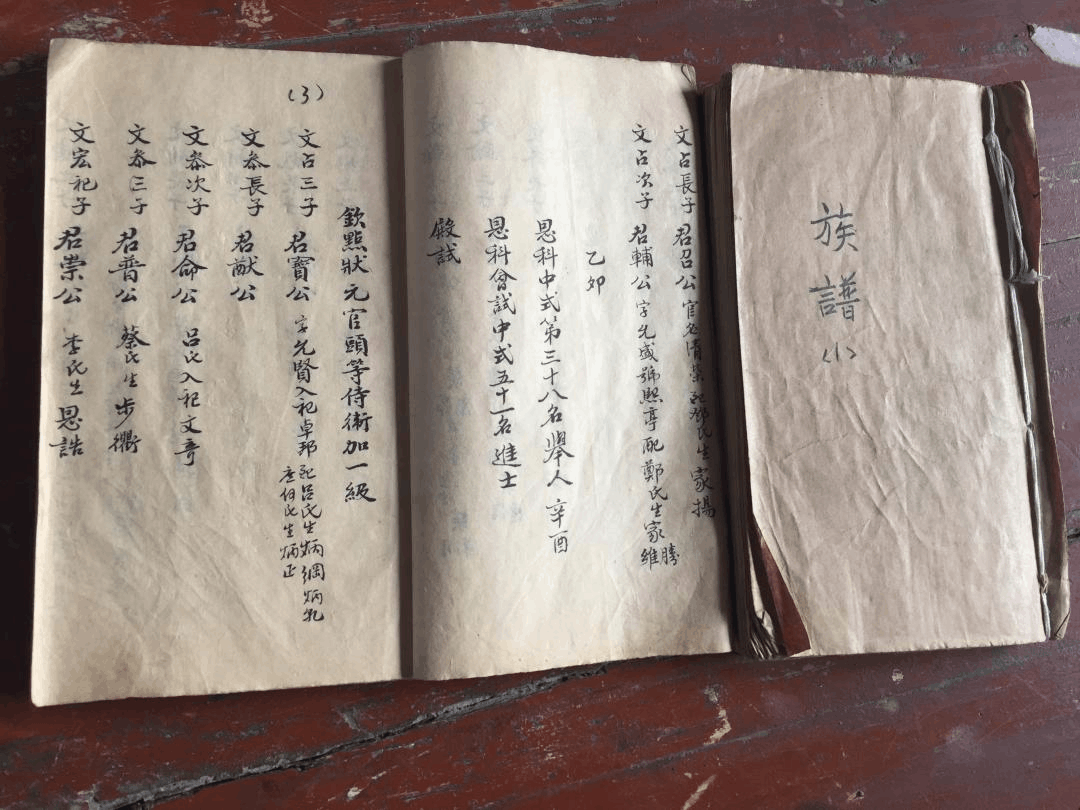 族譜
(1)
文占長子 君召公 官名清榮 配鄧氏生家揚
文占次子 君輔公 字允盛號熙亭配鄭氏生家勝維
乙卯
恩科中式第三十八名舉人 辛酉
恩科會試中式五十一名進士
殿試
(3)
欽點狀元官頭等侍衛加一級
文占三子 君寶公 字允賢入祀卓邦 配呂氏生炳綱炳乾 庶何氏生炳正
文泰長子 君猷公
文泰次子 君命公 呂氏入祀文奇
文泰三子 君普公 蔡氏生步衢
文宏祀子 君崇公 李氏生恩誥